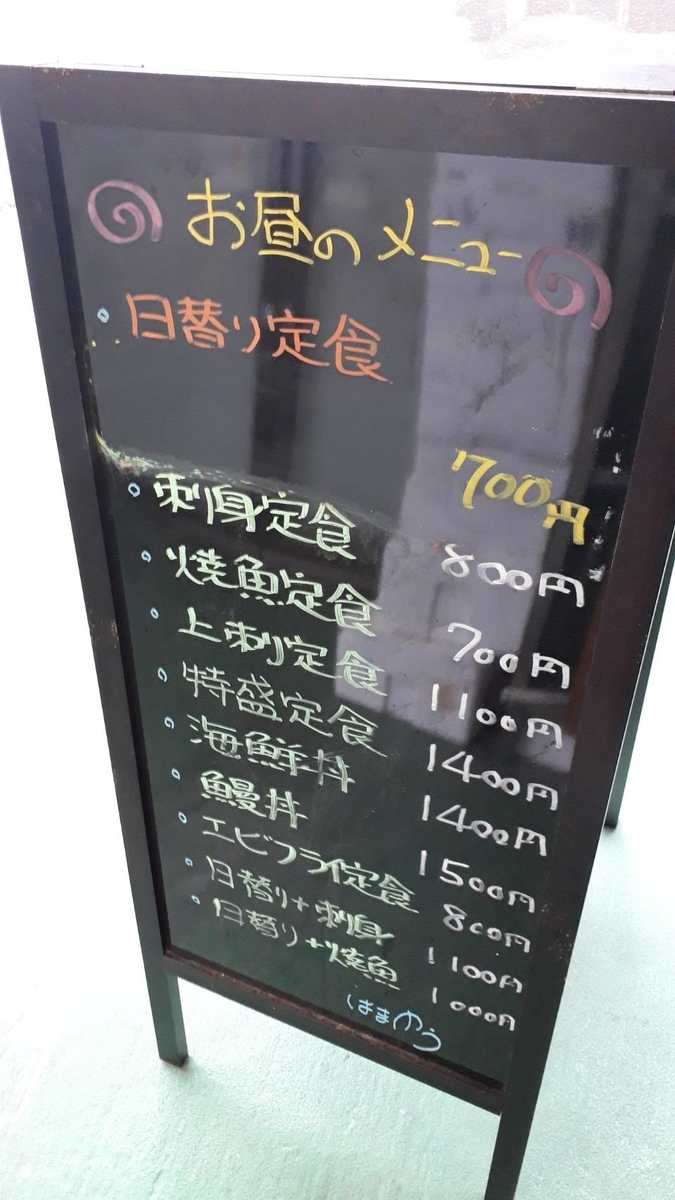 お昼のメニュー
日替り定食
700円
刺身定食 800円
焼魚定食 700円
上刺定食 1100円
特盛定食 1400円
海鮮丼 1400円
鰻丼 1500円
エビフライ定食 800円
日替り+刺身 1100円
日替り+焼魚 1000円
はまゆう